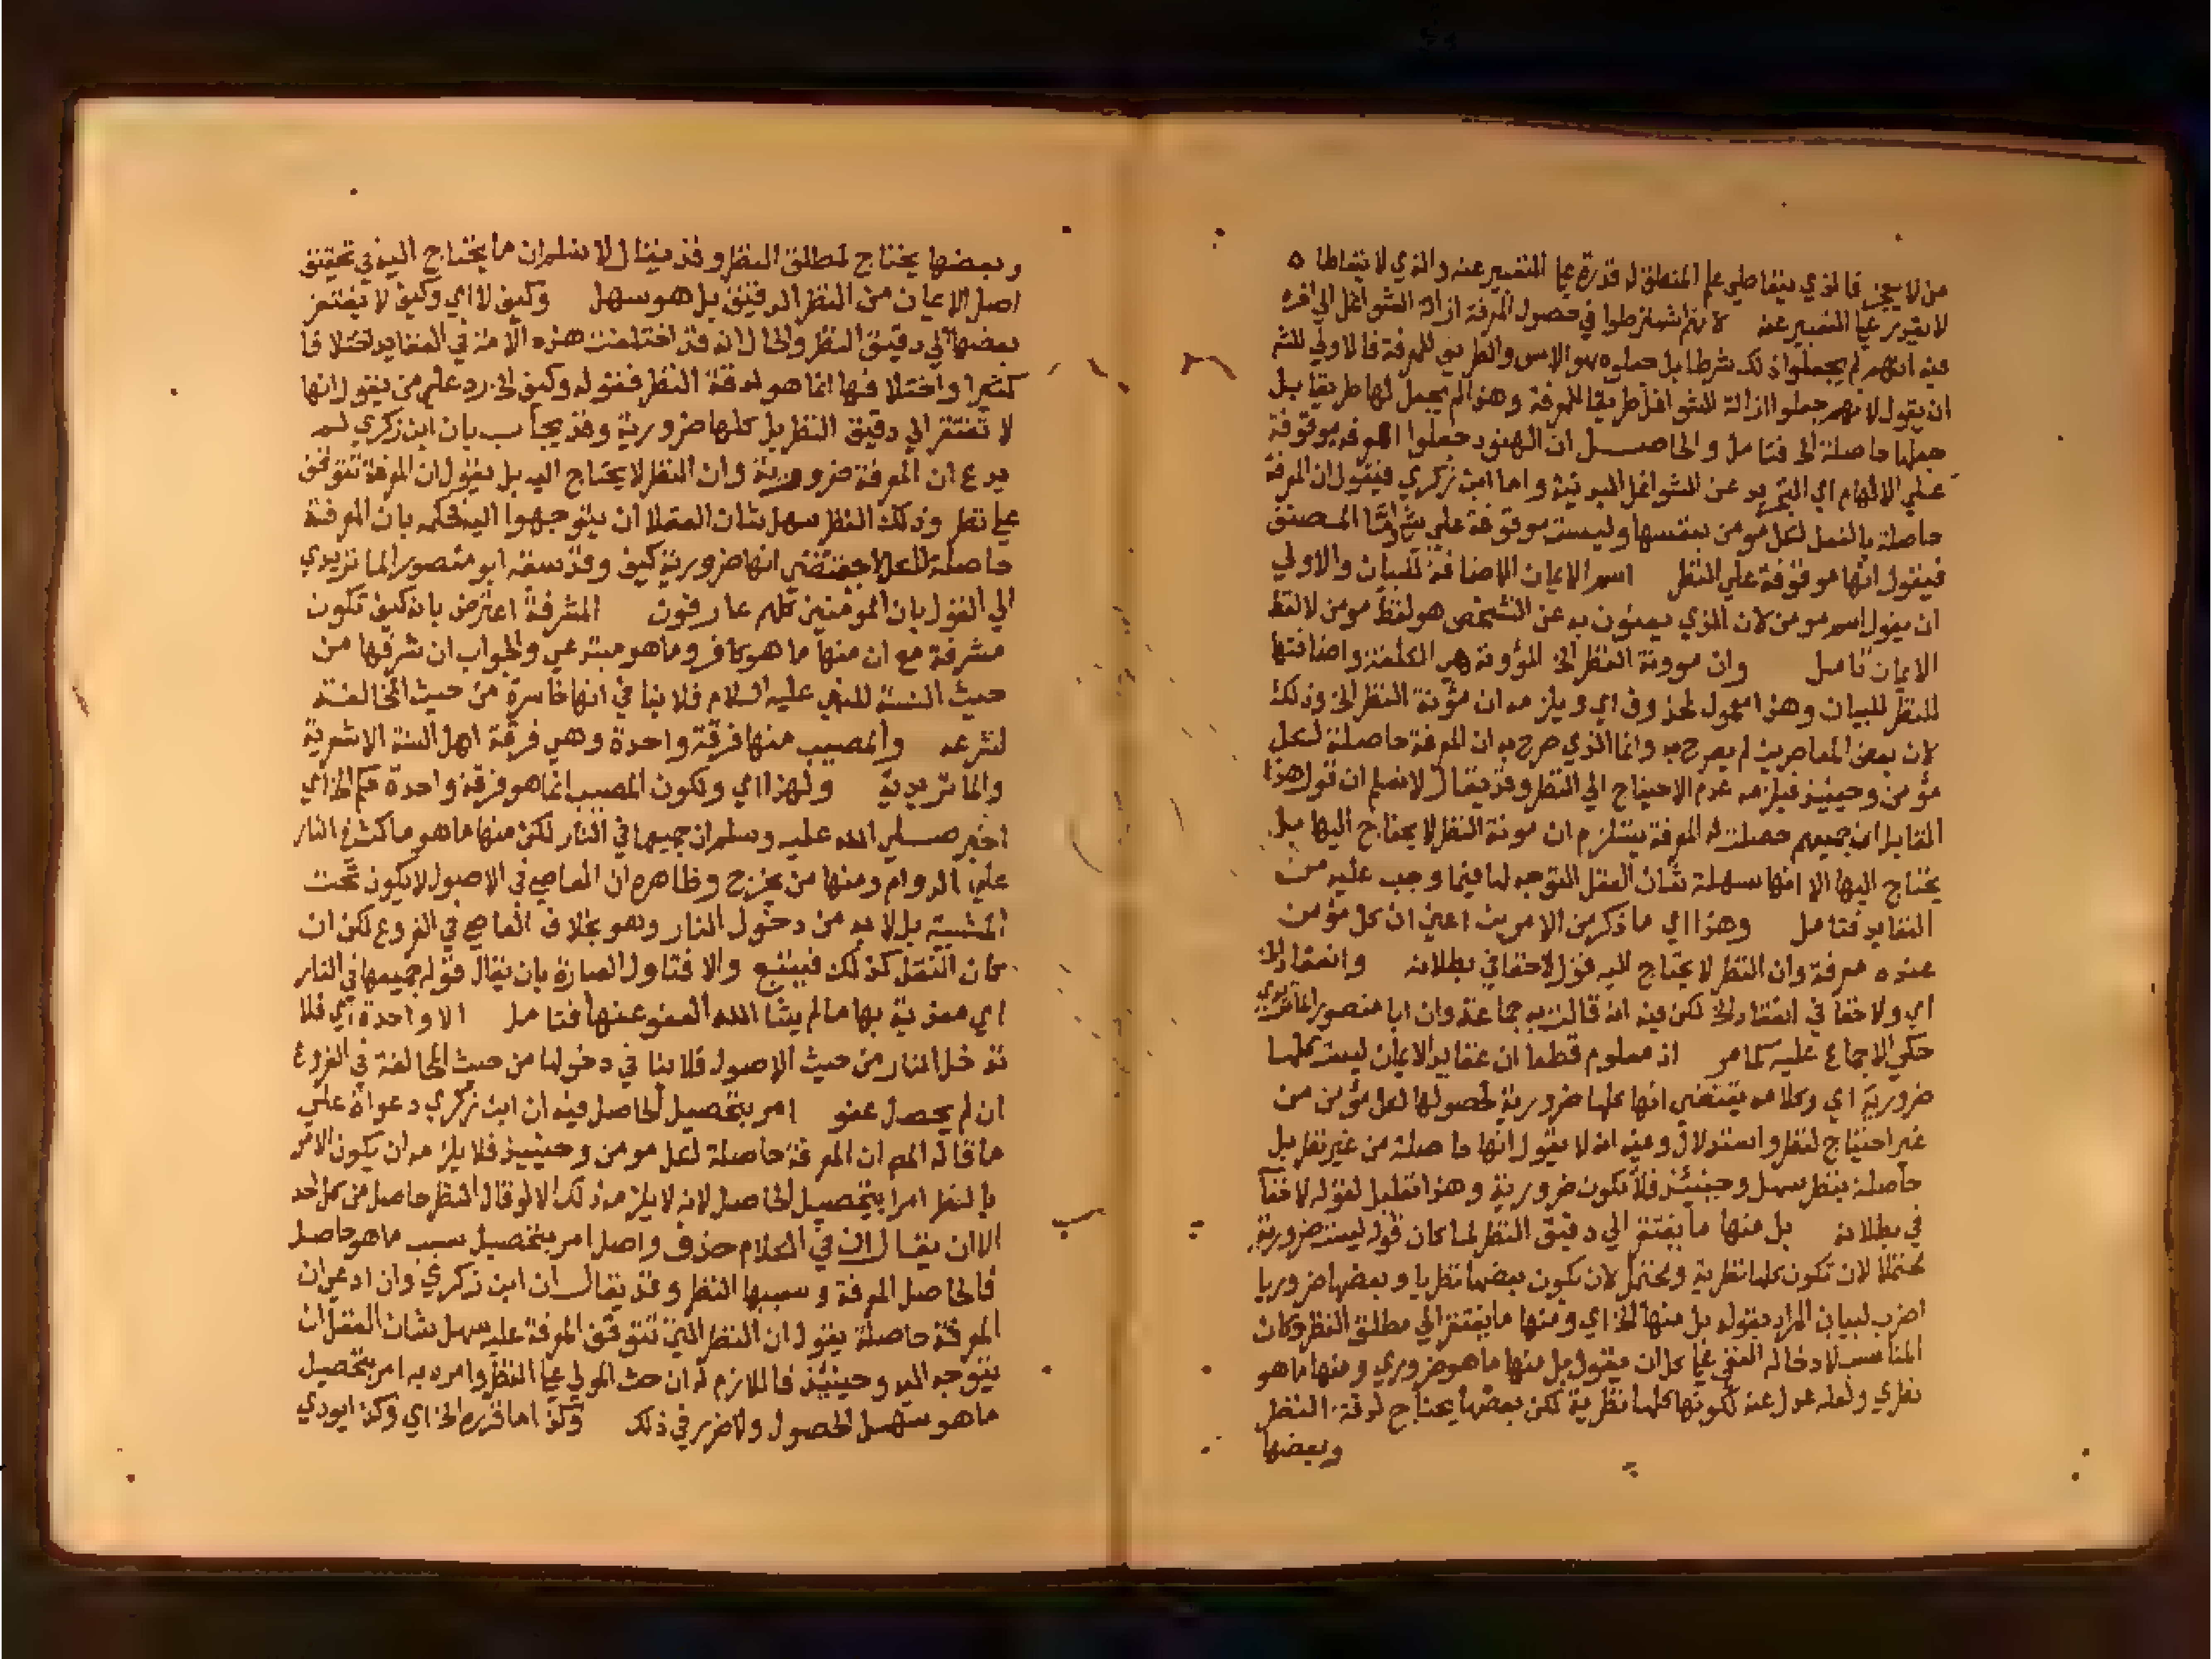 من لا يعجز فالذي يتعاطى علم المنطق له قدرة علي التعبير عنه والذي لا يتعاطاه
لا يقدر علي التعبير عنه لانهم اشترطوا في حصول المعرفة ازالة الشواغل الي اخره
فيه انهم لم يجعلوا ذلك شرطا بل جعلوه هو الاس والطريق للمعرفة فالاولي للشم
ان يقول لانهم جعلوا ازالة الشواغل طريقا للمعرفة وهذا لم يجعل لها طريقا بل
جعلها حاصلة الخ فتامل والحاصل ان الهنود جعلوا المعرفة موقوفة
علي الالهام اي التجريد عن الشواغل البدنية واما ابن زكري فيقول ان المعرفة
حاصلة بالفعل لكل مومن بنفسها وليست موقوفة علي شي واما المصنف
فيقول انها موقوفة علي النظر اسم الايمان الاضافة للبيان والاولي
ان يقول اسم مومن لان الذي يعبرون به عن الشخص هو لفظ مومن لا لفظ
الايمان تامل وان موونة النظر الخ المؤونة هي الكلفة واضافتها
للنظر للبيان وهذا معمول لمحذوف اي ويلزمه ان مؤنة النظر الخ وذلك
لان بعض المعاصرين لم يصرح به وانما الذي صرح به ان المعرفة حاصلة لكل
مؤمن وحينيذ فيلزمه عدم الاحتياج الي النظر وقد يقال لا نسلم ان قول هذا
القايل ان جميعهم حصلت له المعرفة يستلزم ان مونة النظر لا يحتاج اليها بل
يحتاج اليها الا انها سهلة شان العقل التوجه لها فيما وجب عليه من
العقايد فتامل وهذا اي ما ذكر من الامرين اعني ان كل مؤمن
عنده معرفة وان النظر لا يحتاج اليه قول لا خفا في بطلانه وانعقاد الخ
اي ولا خفا في انعقاد الخ لكن فيه انه قالت به جماعة وان ابا منصور الماتريدي
حكي الاجماع عليه كما مر اذ معلوم قطعا ان عقايد الايمان ليست كلها
ضرورية اي وكلامه يقتضي انها كلها ضرورية لحصولها لكل مؤمن من
غير احتياج لنظر واستدلال وفيه انه لا يقول انها حاصلة من غير نظر بل
حاصلة بنظر سهل وحينيذ فلا تكون ضرورية وهذا تعليل لقوله لا خفا
في بطلانه بل منها ما يفتقر الي دقيق النظر لما كان قوله ليست ضرورية
محتملا لان تكون كلها نظرية ومحتمل لان تكون بعضها نظريا وبعضها ضروريا
اضرب لبيان المراد بقوله بل منها الخ اي ومنها ما يفتقر الي مطلق النظر وكان
المناسب لادخاله النفي علي كل ان يقول بل منها ما هو ضروري ومنها ما هو
نظري ولعله عدل عنه لكونها كلها نظرية لكن بعضها يحتاج لدقة النظر
وبعضها
وبعضها يحتاج لمطلق النظر وقد يقال لا نسلم ان ما يحتاج اليه في تحقيق
اصل الايمان من النظر الدقيق بل هو سهل وكيف لا اي وكيف لا يفتقر
بعضها الي دقيق النظر والحال انه قد اختلفت هذه الامة في العقايد اختلافا
كثيرا واختلافها انما هو لدقة النظر فقوله وكيف الخ رد علي من يقول انها
لا تفتقر الي دقيق النظر بل كلها ضرورية وقد يجاب بان ابن زكري لم
يدع ان المعرفة ضرورية وان النظر لا يحتاج اليه بل يقول ان المعرفة تتوقف
علي نظر وذلك النظر سهل شان العقلا ان يتوجهوا اليه فحكمه بان المعرفة
حاصلة لكل لا يقتضي انها ضرورية كيف وقد سبقه ابو منصور الماتريدي
الي القول بان المؤمنين كلهم عارفون المشرفة اعترض بانه كيف تكون
مشرفة مع ان منها ما هو كافر وما هو مبتدعي والجواب ان شرفها من
حيث النسبة للنبي عليه السلام فلا ينافي انها خاسرة من حيث المخالفة
لشرعه والمصيب منها فرقة واحدة وهي فرقة اهل السنة الاشعرية
والماتريدية ولهذا اي ولكون المصيب انما هو فرقة واحدة حكم الخ اي
اخبر صلي الله عليه وسلم ان جميعها في النار لكن منها ما هو ماكث في النار
علي الدوام ومنها من يخرج وظاهره ان العاصي في الاصول لا يكون تحت
المشيية بل لا بد من دخول النار وهو بخلاف العاصي في الفروع لكن ان
كان النقل كذلك فيتبع والا فتاول العبارة بان يقال قوله جميعها في النار
اي معذبة بها ما لم يشا الله العفو عنها فتامل الا واحدة اي فلا
تدخل النار من حيث الاصول فلا ينافي دخولها من حيث المخالفة في الفروع
ان لم يحصل عفو امر بتحصيل الحاصل فيه ان ابن زكري دعواه علي
ما قاله المص ان المعرفة حاصلة لكل مومن وحينيذ فلا يلزمه ان يكون الامر
بالنظر امرا بتحصيل الحاصل لانه لا يلزمه ذلك الا لو قال النظر حاصل من كل احد
الا ان يقال ان في الكلام حذف واصل امر بتحصيل سبب ما هو حاصل
فالحاصل المعرفة وسببها النظر وقد يقال ان ابن زكري وان ادعي ان
المعرفة حاصلة يقول ان النظر الذي تتوقف المعرفة عليه سهل شان العقل ان
يتوجه اليه وحينيذ فاللازم له ان حث المولي علي النظر وامره به امر بتحصيل
ما هو سهل الحصول ولا ضرر في ذلك وكذا ما قرره الخ اي وكذا يودي